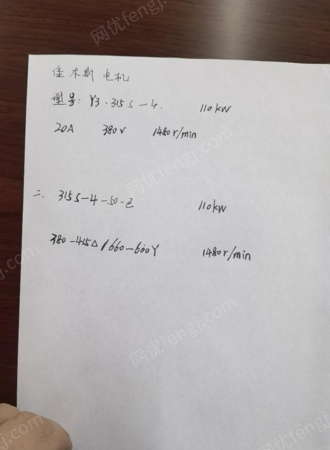 佳木斯电机
型号: Y3-315S-4. 110kW
20A 380V 1480r/min
二、315S-4-50-Z 110kW
380-415△/660-600Y 1480r/min
网优fengj.com
网优fengj.com